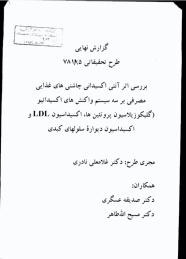 گزارش نهایی
طرح تحقیقاتی ۷۸۱۶۵
بررسی اثر آنتی اکسیدانی چاشنی های غذایی
مصرفی بر سه سیستم واکنش های اکسیداتیو
(گلیکوزیلاسیون پروتئین ها، اکسیداسیون LDL و
اکسیداسیون دیوارهٔ سلولهای کبدی
مجری طرح: دکتر غلامعلی نادری
همکاران:
دکتر صدیقه عسگری
دکتر مسیح الله‌طاهر